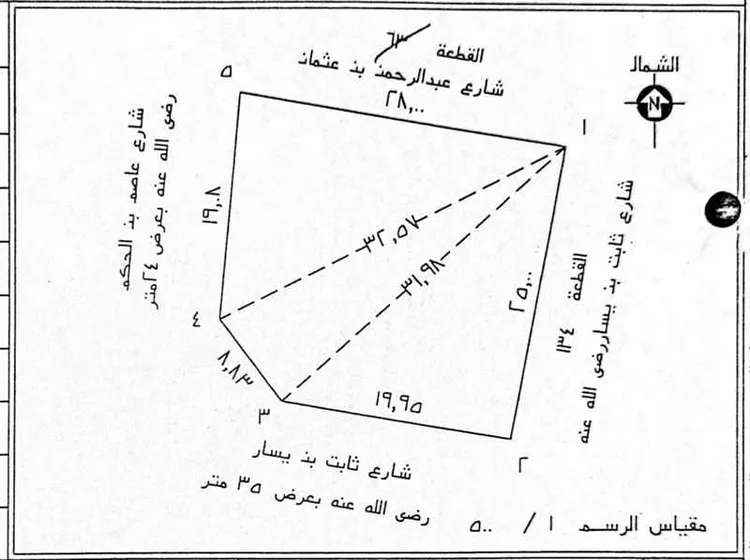 القطعة ٦٣
شارع عبدالرحمن بن عثمان
٢٨,٠٠
الشمال
N
٥
١
شارع عاصم بن الحكم
رضى الله عنه بعرض ٢٤متر
١٩,٠٨
٣٢,٥٧
٣١,٩٨
٢٥,٠٠
القطعة ١٣٤
شارع ثابت بن يسار رضى الله عنه
٤
٨,٨٣
٣
١٩,٩٥
٢
شارع ثابت بن يسار
رضى الله عنه بعرض ٣٥ متر
مقياس الرسم ١ / ٥٠٠